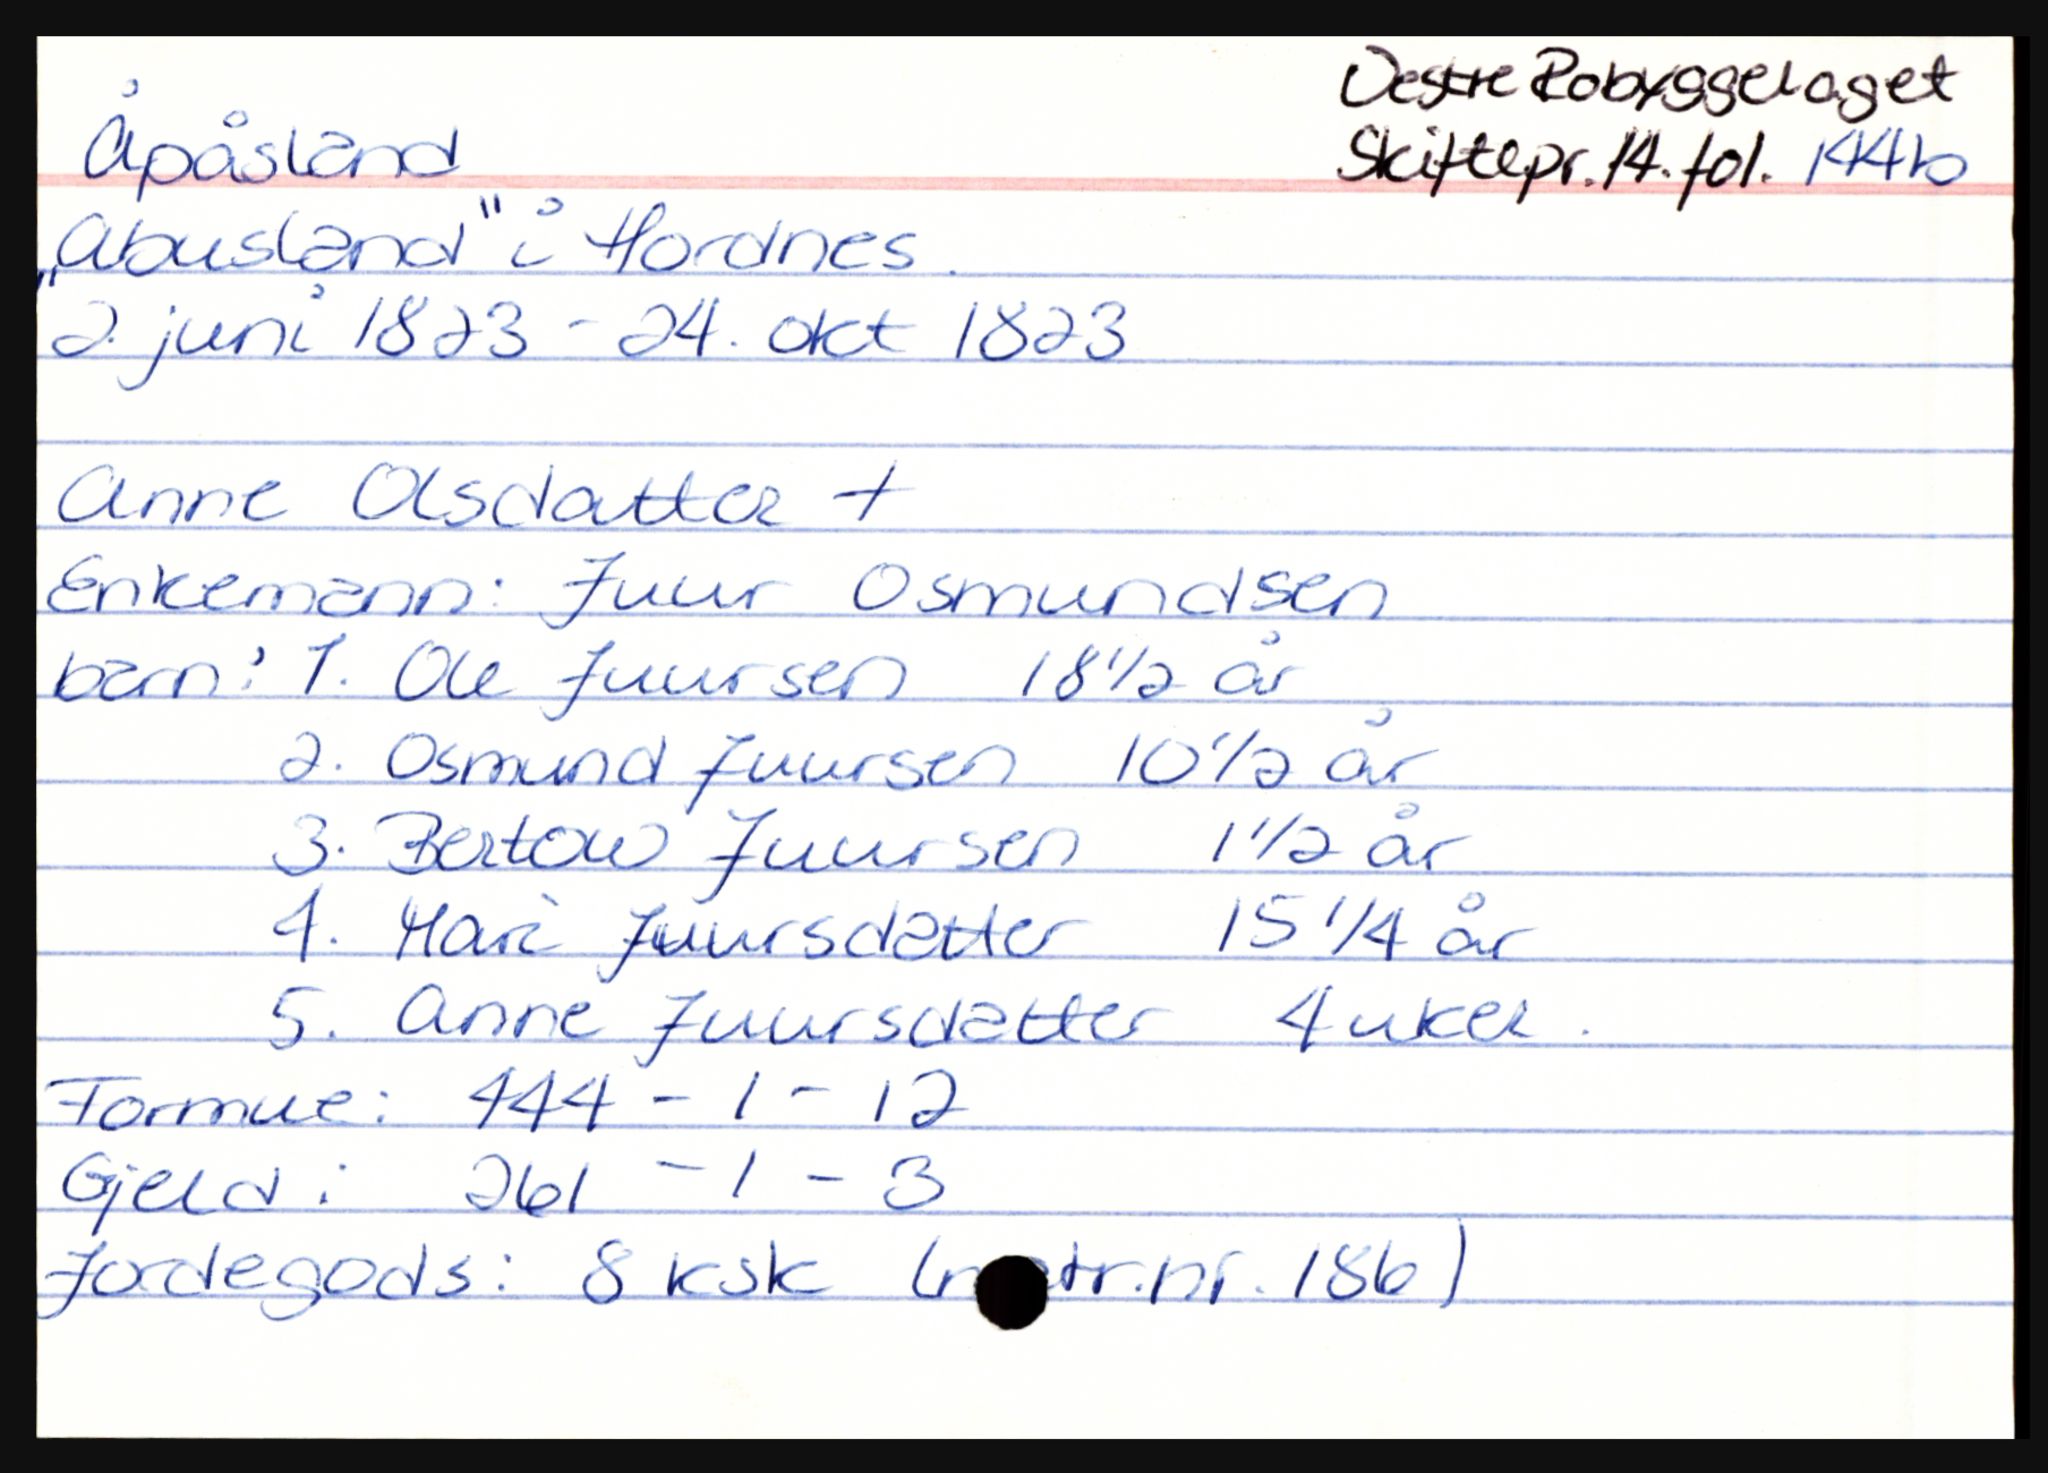 Vestre Robyggelaget
Skiftepr. 14. fol. 144b
Åpåsland
„Abusland" i Hordnes.
2. juni 1823 - 24. okt 1823
Anne Olsdatter +
Enkemann: Juur Osmundsen
barn: 1. Ole Juursen 18 1/2 år
2. Osmund Juursen 10 1/2 år
3. Bertow Juursen 1 1/2 år
4. Mari Juursdatter 15 1/4 år
5. Anne Juursdatter 4 uker.
Formue: 444 - 1 - 12
Gjeld: 261 - 1 - 3
Jordegods: 8 ksk (matr.nr. 186)